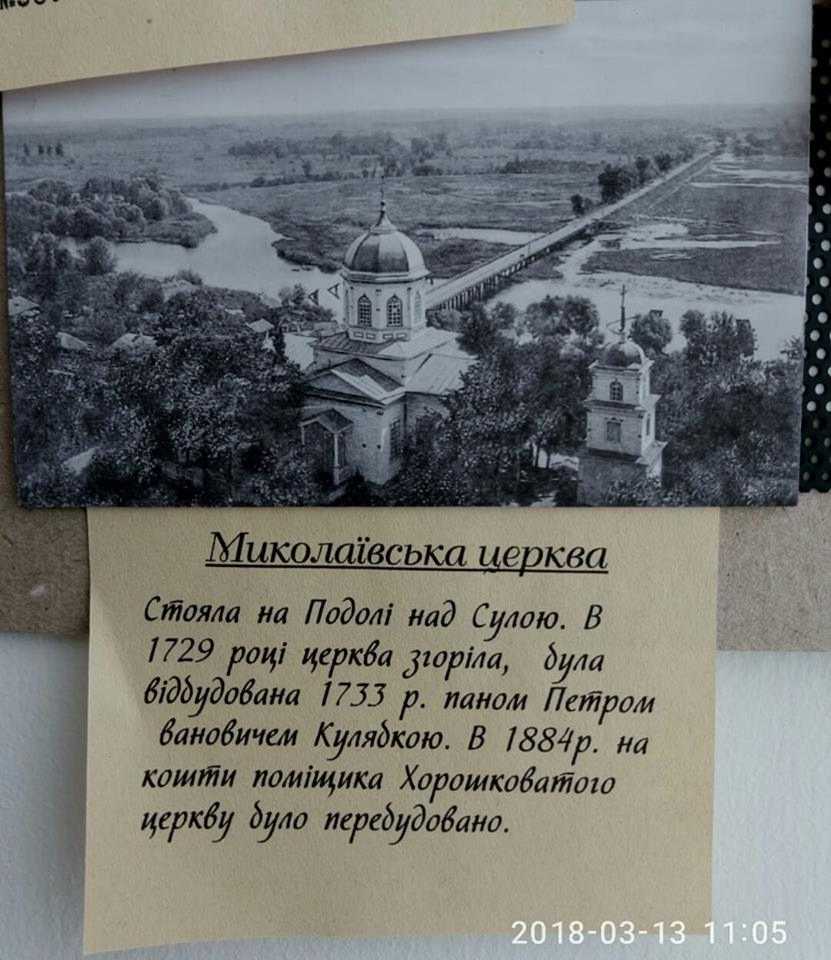 Миколаївська церква
Стояла на Подолі над Сулою. В
1729 році церква згоріла, була
відбудована 1733 р. паном Петром
вановичем Кулябкою. В 1884р. на
кошти поміщика Хорошковатого
церкву було перебудовано.
2018-03-13 11:05